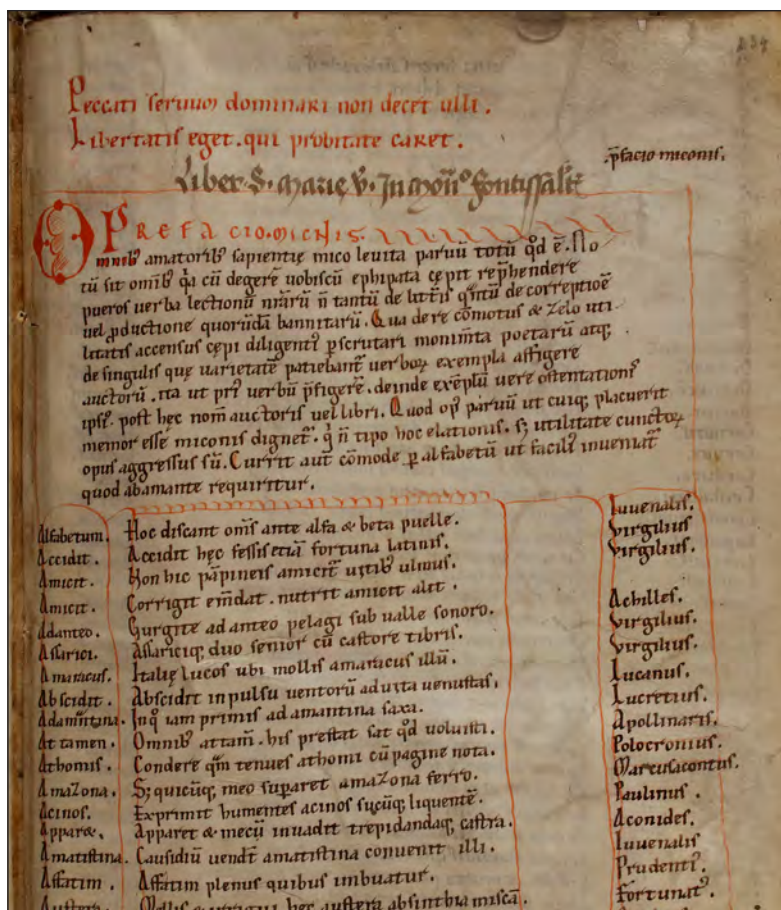 234
Peccati seruum dominari non decet ulli.
Libertatis eget. qui probitate caret.
p̄facio miconis.
Liber S. Marie V. In
O PREFACIO. MICNIS.
mnibꝰ amatoribꝰ sapientię mico leuita paruū totū qd̄ ē. No
tū sit om̄ibꝰ q̄a cū degere uobiscū ephipata cępit rep̄hendere
pueros uerba lectionū nr̄arū n̄ tantū de litt̄is qn̄tū de correptioē
uel ꝓductione quorūdā bannitarū. Qua de re cōmotus & zelo uti
litatis accensus cępi diligent̄ ꝑscrutari monim̄ta poetarū atq;
de singulis quę uarietatē patiebant̄ uerboꝝ exempla affigere
auctorū. ita ut priꝰ uerbū p̄figerē. deinde exēplū uere ostentationꝭ
ipsiꝰ. post hęc nom̄ auctoris uel libri. Quod opꝰ paruū ut cuiq; placuerit
memor esse miconis dignet̄. q̄ n̄ tipo hoc elationis. s; utilitate cunctoꝝ
opus aggressus sū. Currit aut̄ cōmode ꝑ alfabetū ut faciliꝰ inueniat̄
quod ab amante requiritur.
Alfabetum. Hoc discant om̄s ante alfa & beta puelle. Iuuenalis.
Accidit. Accidit hęc fessis etiā fortuna latinis. Virgilius
Amicit. Non hic pāpineis amicit̄ uitibꝰ ulmus. Virgilius.
Amicit. Corrigit em̄dat. nutrit amicit alit.
Adanteo. Gurgite ad anteo pelagi sub ualle sonoro. Achilles.
Assarici. Assariciq; duo senior cū castore tibris. Virgilius.
Amaracus. Italię lucos ubi mollis amaracus illū. Virgilius.
Abscidit. Abscidit inpulsu uentorū adiuta uenustas. Lucanus.
Adamn̄tina. Inq̄ iam primis adamantina saxa. Lucretius.
At tamen. Omnibꝰ attam̄. his prestat sat qd̄ uoluisti. Apollinaris.
Athomis. Condere qm̄ tenues athomi cū pagine nota. Polocronius.
Amazona. S; quicūq; meo suꝑaret amazona ferro. Marcusacontus.
Acinos. Exprimit humentes acinos sucūq; liquentē. Paulinus.
Apparæ. Apparet & mecū inuadit trepidandaq; castra. Aconides.
Amatistina. Causidiū uendt̄ amatistina conuenit illi. Iuuenalis
Affatim. Affatim plenus quibus imbuatur. Prudentiꝰ.
Austera. Mollis hęc austera absinthia miscā. Fortunatꝰ.